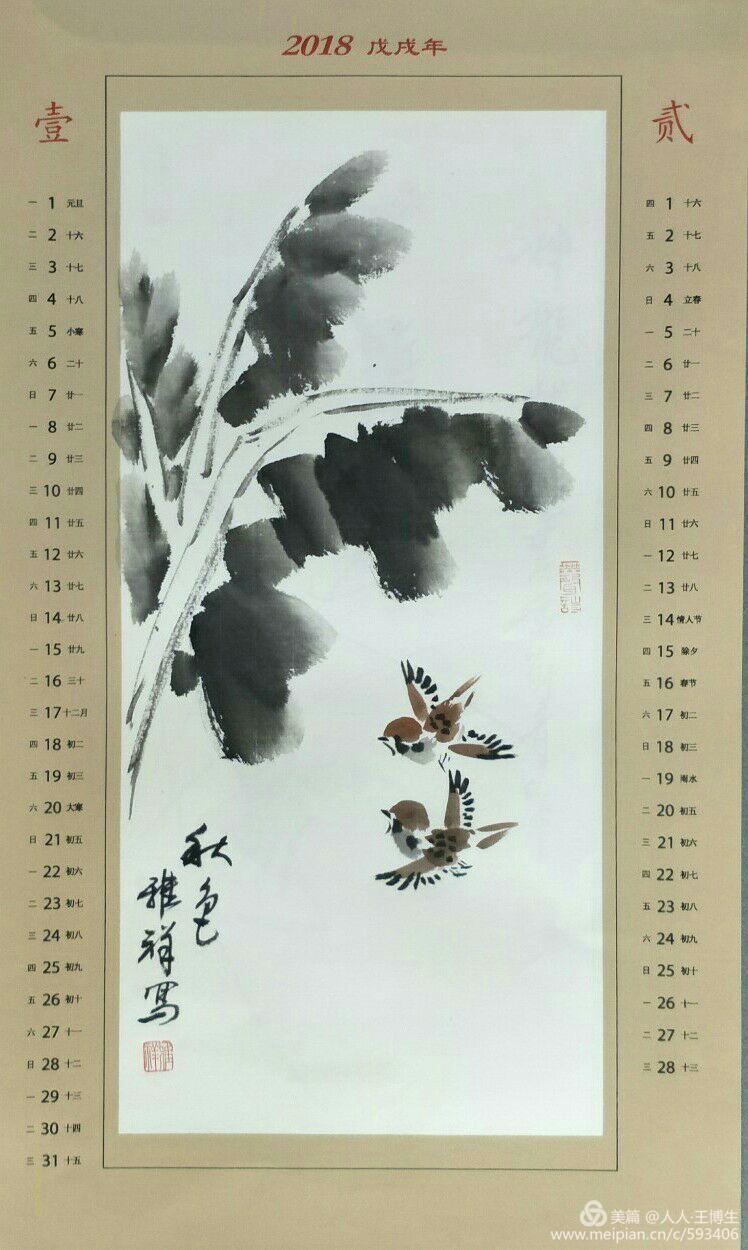 2018 戊戌年
壹
一 1 元旦
二 2 十六
三 3 十七
四 4 十八
五 5 小寒
六 6 二十
日 7 廿一
一 8 廿二
二 9 廿三
三 10 廿四
四 11 廿五
五 12 廿六
六 13 廿七
日 14 廿八
一 15 廿九
二 16 三十
三 17 十二月
四 18 初二
五 19 初三
六 20 大寒
日 21 初五
一 22 初六
二 23 初七
三 24 初八
四 25 初九
五 26 初十
六 27 十一
日 28 十二
一 29 十三
二 30 十四
三 31 十五
秋色
雅祥写
贰
四 1 十六
五 2 十七
六 3 十八
日 4 立春
一 5 二十
二 6 廿一
三 7 廿二
四 8 廿三
五 9 廿四
六 10 廿五
日 11 廿六
一 12 廿七
二 13 廿八
三 14 情人节
四 15 除夕
五 16 春节
六 17 初二
日 18 初三
一 19 雨水
二 20 初五
三 21 初六
四 22 初七
五 23 初八
六 24 初九
日 25 初十
一 26 十一
二 27 十二
三 28 十三
美篇 @人人·王博生
www.meipian.cn/c/593406